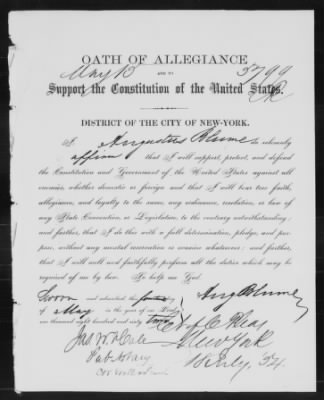 OATH OF ALLEGIANCE
AND TO
May 13 5799
Support the Constitution of the United States.
DISTRICT OF THE CITY OF NEW-YORK.
I Augustus Blume do solemnly
affirm that I will support, protect, and defend
the Constitution and Government of the United States against all
enemies, whether domestic or foreign and that I will bear true faith,
allegiance, and loyalty to the same, any ordinance, resolution, or law of
any State Convention, or Legislature, to the contrary notwithstanding;
and further, that I do this with a full determination, pledge, and pur-
pose, without any mental reservation or evasion whatsoever; and further,
that I will well and faithfully perform all the duties which may be
required of me by law. So help me God.
Sworn and subscribed this day Aug Blume
of May in the year of our Lord
one thousand eight hundred and sixty
Jas. W. Hale New York